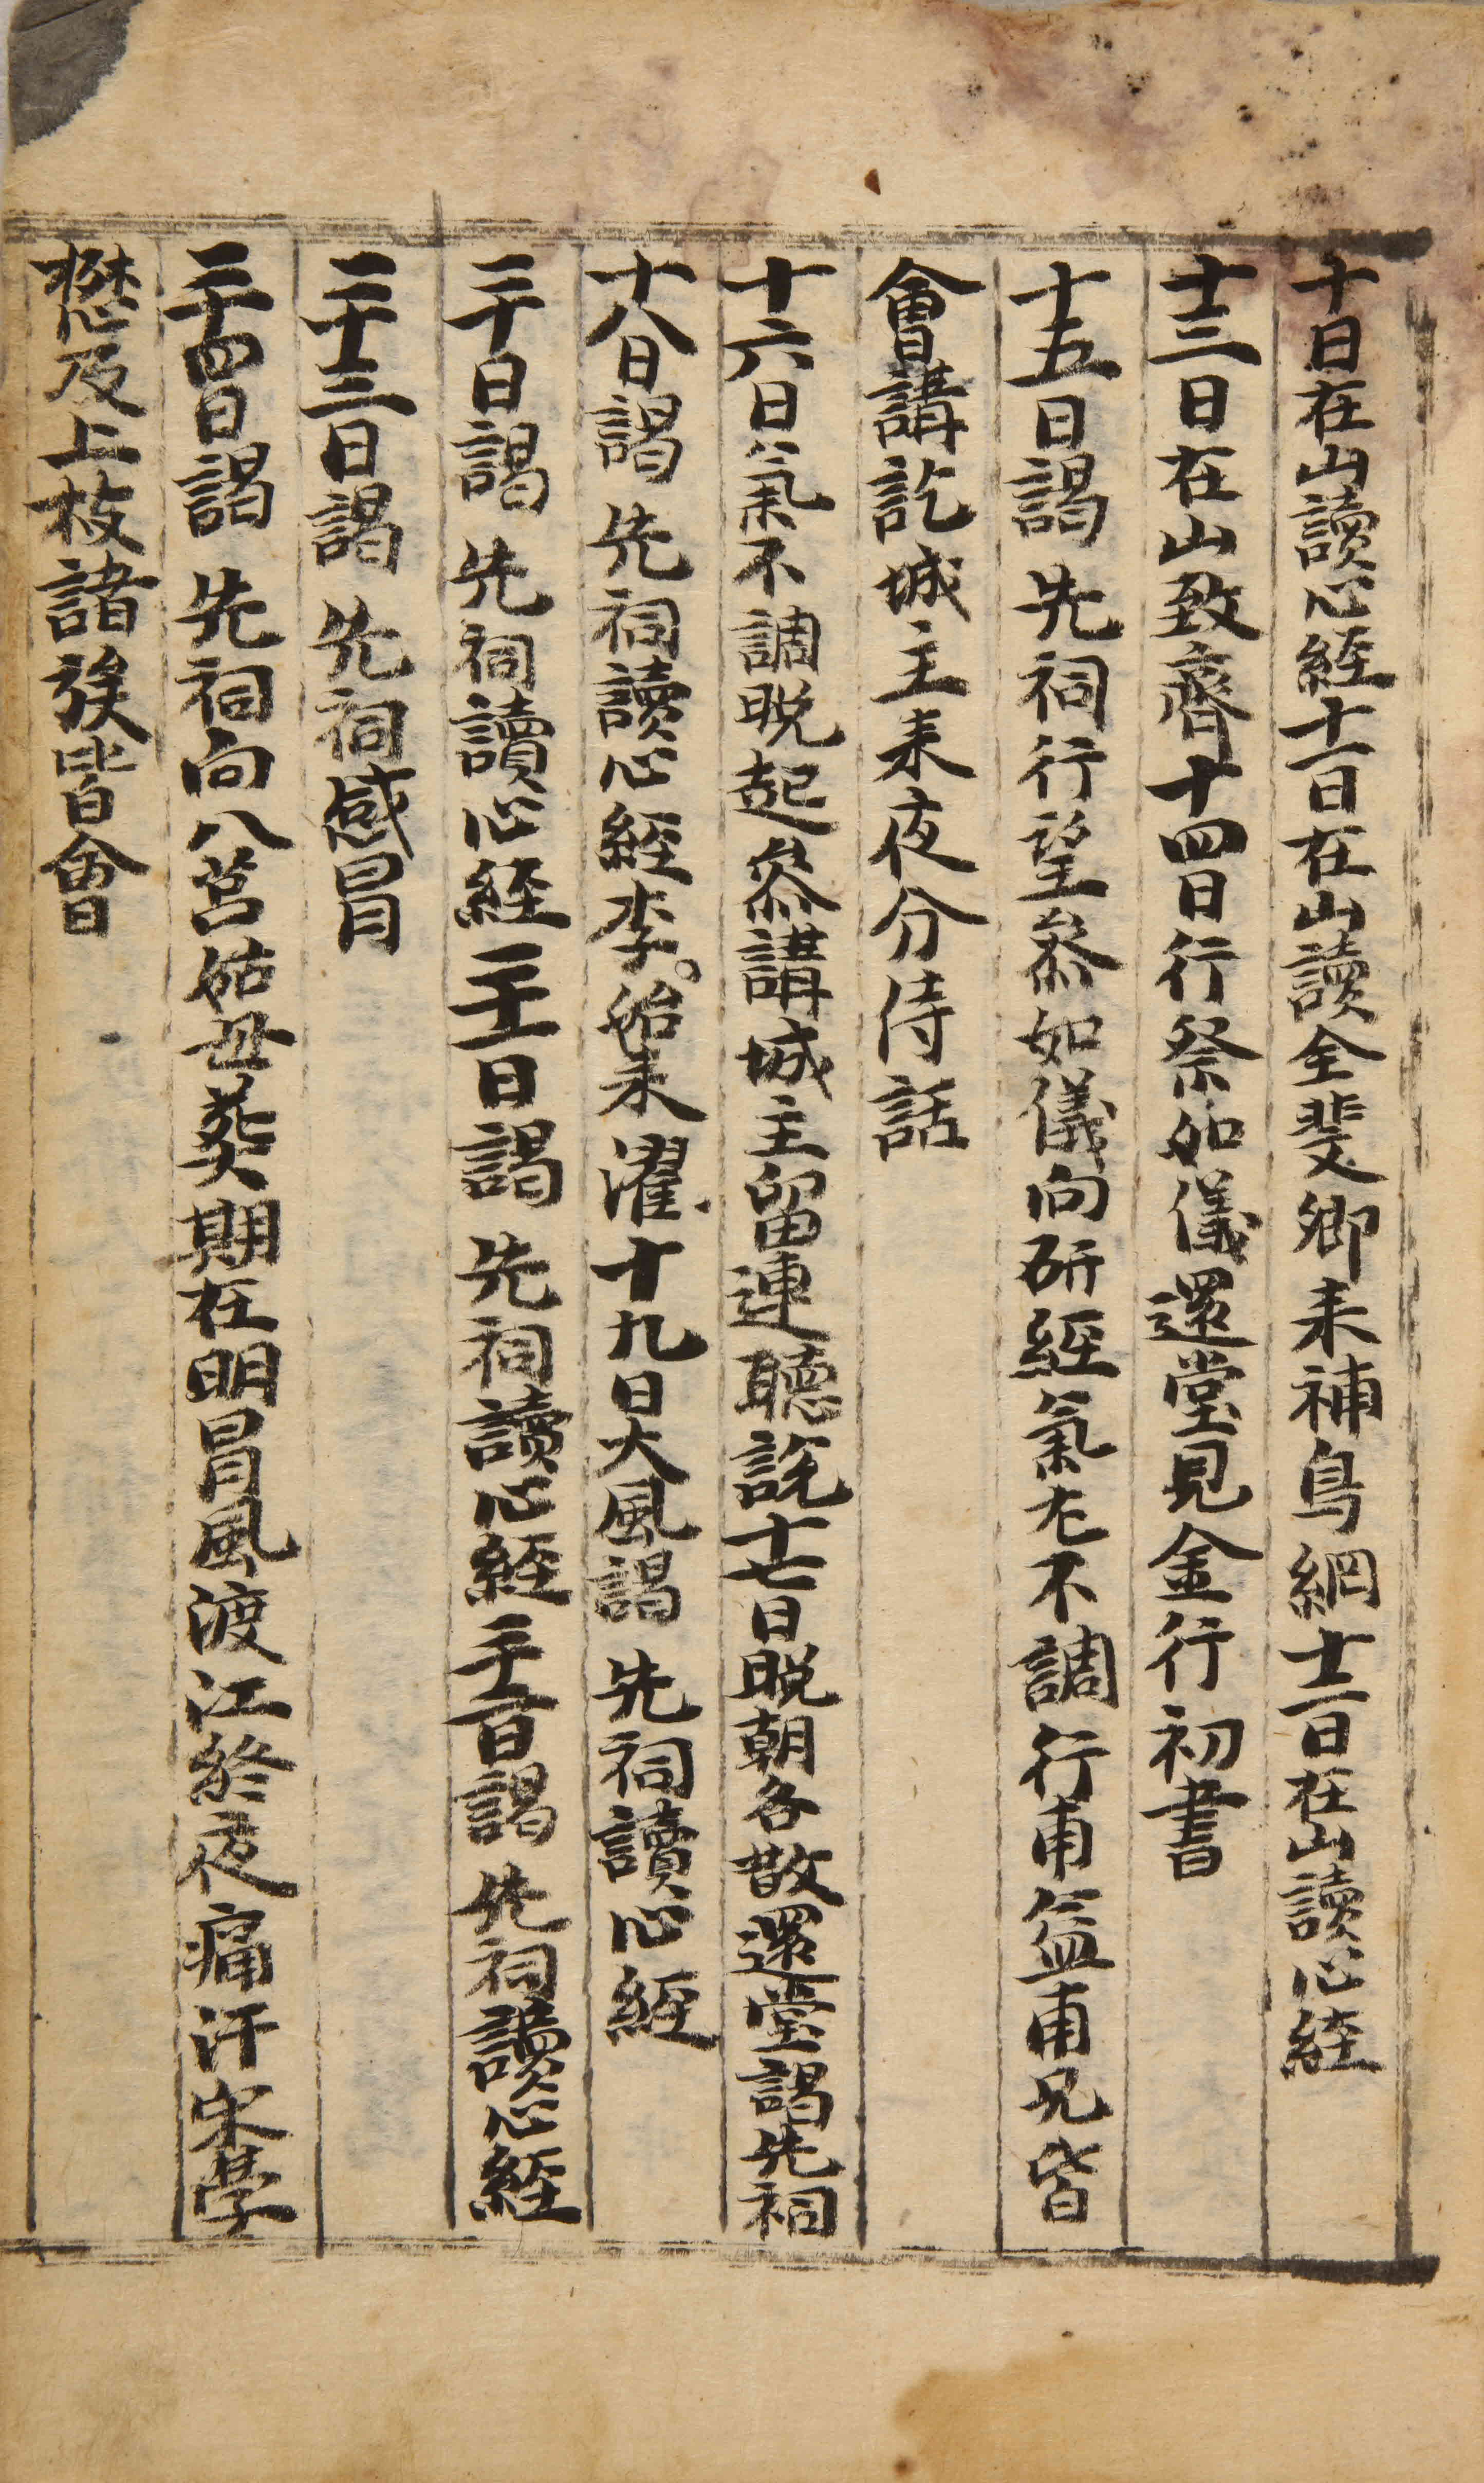 十日在山讀心經十一日在山讀全斐卿来補鳥網十二日在山讀心經
十三日在山致齋十四日行祭如儀還堂見金行初書
十五日謁 先祠行望叅如儀向硏經氣尤不調行甫益甫兄皆
會講訖城主来夜分侍話
十六日氣不調晩起叅講城主留連聽訖十七日晩朝各散還堂謁先祠
十八日謁 先祠讀心經李始来濯十九日大風謁 先祠讀心經
二十日謁 先祠讀心經二十一日謁 先祠讀心經二十二日謁 先祠讀心經
二十三日謁 先祠感冒
二十四日謁 先祠向八莒姑母葬期在明冒風渡江終夜痛汗宋學
懋及上枝諸族皆會